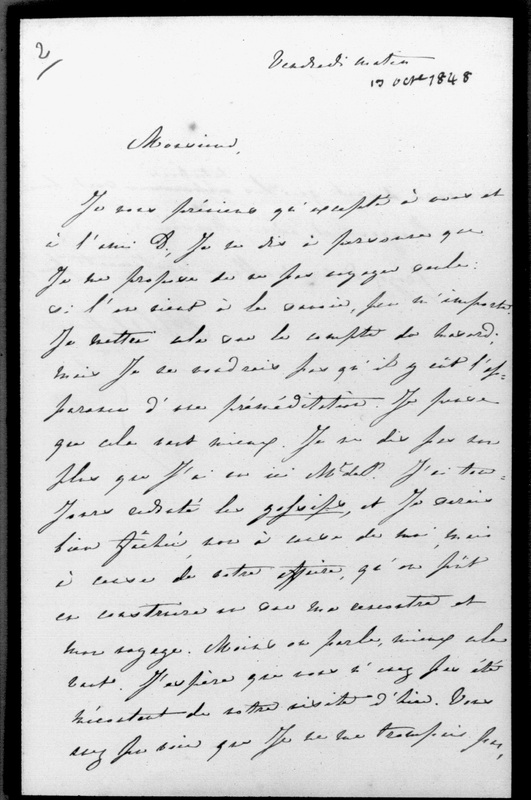 2/
Vendredi matin
13 octe 1848
Monsieur,
Je vous préviens qu'excepté à vous et
à l'ami D, Je ne dis à personne que
Je me propose de ne pas voyager seule:
si l'on vient à le savoir, peu m'importe.
Je mettrai cela sur le compte du hasard;
mais Je ne voudrais pas qu'il y eût l'ap=
parence d'une préméditation. Je pense
que cela vaut mieux. Je ne dis pas non
plus que J'ai vu ici Mr. de P. J'ai tou=
Jours redouté les gossips, et Je serais
bien fâchée non à cause de moi, mais
à cause de votre affaire, qu'on pût
en construire un sur ma rencontre et
mon voyage. Moins on parle, mieux cela
vaut. J'espère que vous n'avez pas été
mécontent de notre visite d'hier. Vous
avez pu voir que Je ne me trompais pas,